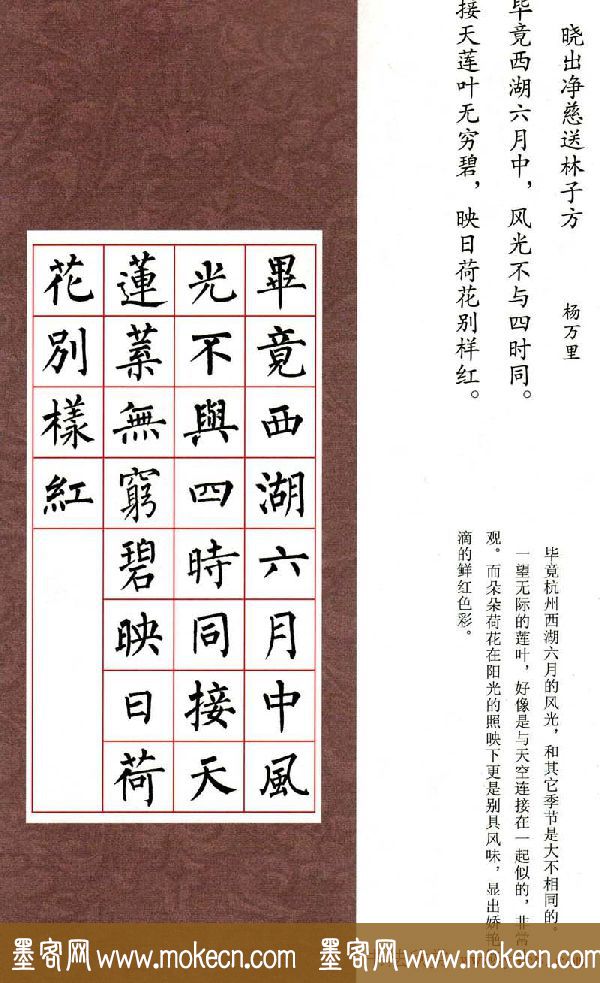 晓出净慈送林子方
杨万里
毕竟西湖六月中，风光不与四时同。
接天莲叶无穷碧，映日荷花别样红。
毕竟杭州西湖六月的风光，和其它季节是大不相同的。
一望无际的莲叶，好像是与天空连接在一起似的，非常
观。而朵朵荷花在阳光的照映下更是别具风味，显出娇艳
滴的鲜红色彩。
畢竟西湖六月中風
光不與四時同接天
蓮葉無窮碧映日荷
花別樣紅
墨客网 www.mokecn.com 墨客网 www.mokecn.com